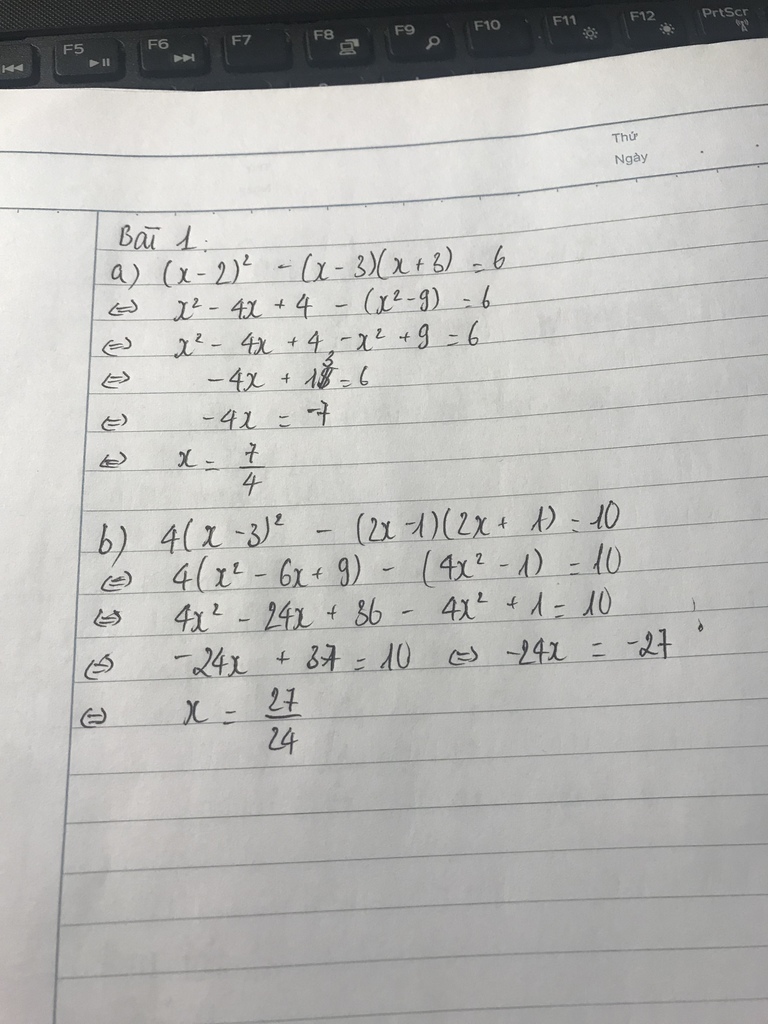 F5 F6 F7 F8 F9 F10 F11 F12 PrtScr
Thứ
Ngày
Bài 1:
a) (x-2)² - (x-3)(x+3) = 6
⇔ x² - 4x + 4 - (x²-9) = 6
⇔ x² - 4x + 4 - x² + 9 = 6
⇔ -4x + 13 = 6
⇔ -4x = -7
⇔ x = 7/4
b) 4(x-3)² - (2x-1)(2x+1) = 10
⇔ 4(x² - 6x + 9) - (4x² - 1) = 10
⇔ 4x² - 24x + 36 - 4x² + 1 = 10
⇔ -24x + 37 = 10 ⇔ -24x = -27
⇔ x = 27/24